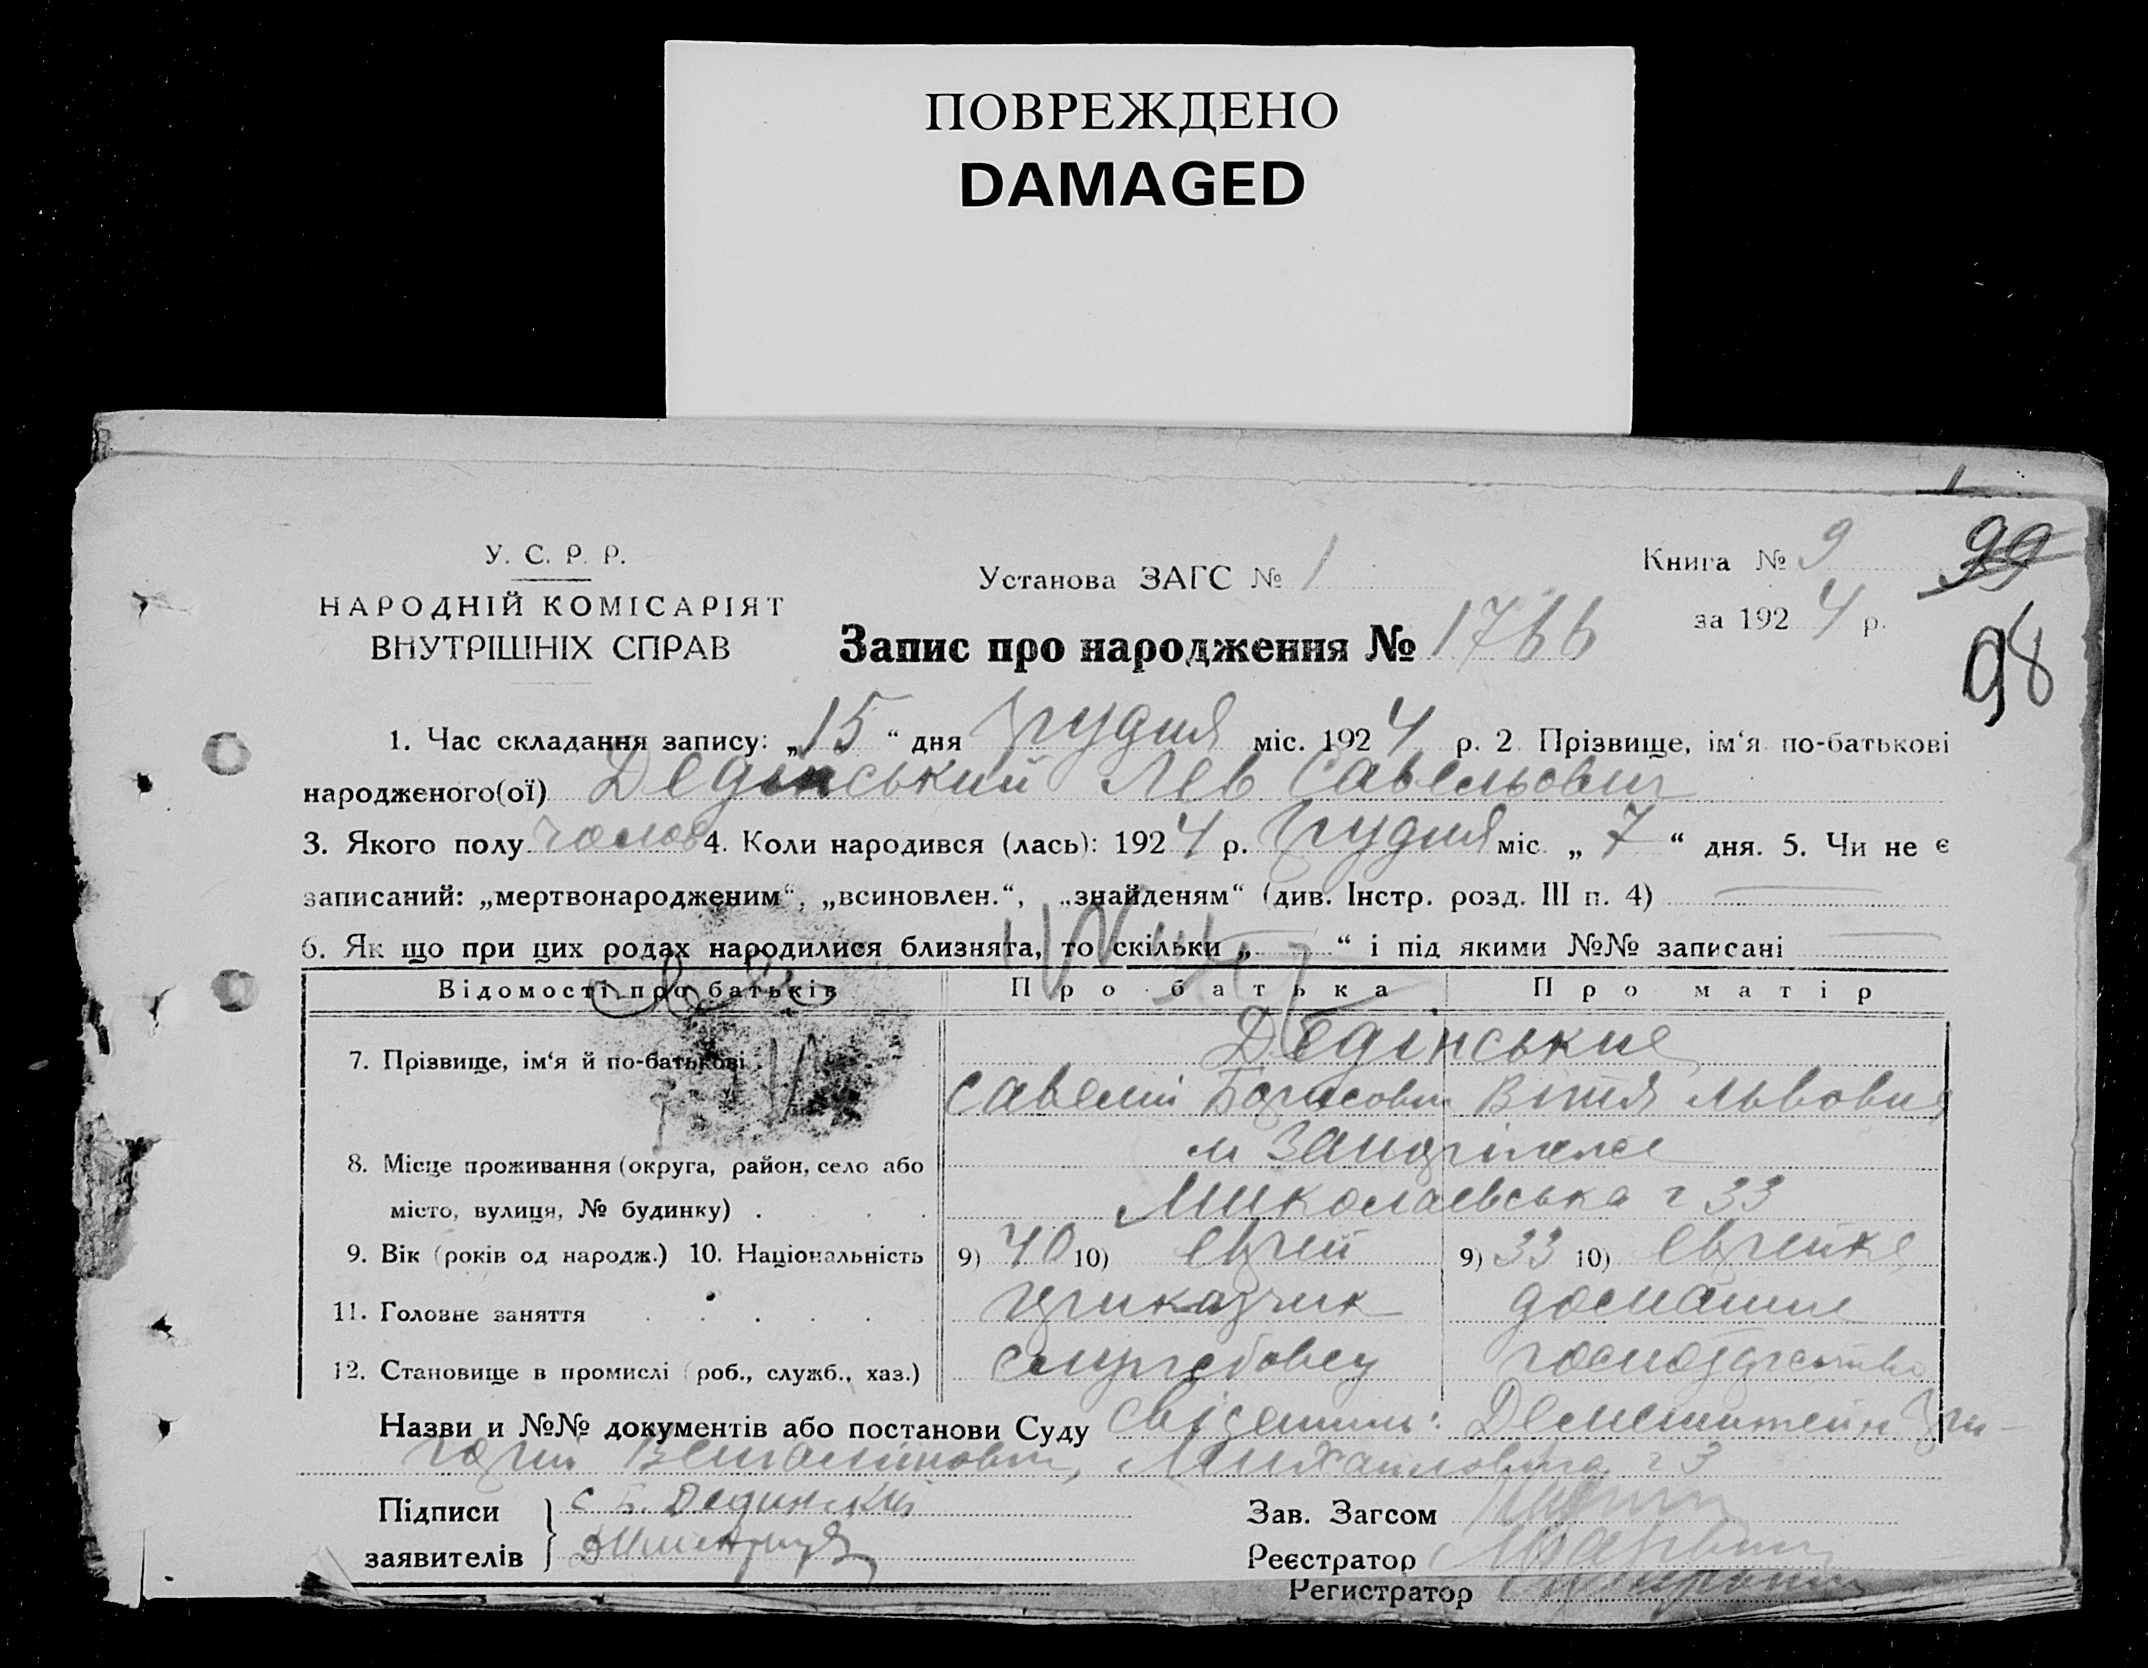 ПОВРЕЖДЕНО
DAMAGED
У. С. Р. Р.
НАРОДНІЙ КОМІСАРІЯТ
ВНУТРІШНІХ СПРАВ
Установа ЗАГС № 1
Книга № 9
99
за 1924 р.
98
Запис про народження № 1766
1. Час складання запису: „15“ дня грудня міс. 1924 р. 2 Прізвище, ім‘я по-батькові
народженого(ої) Дедінський Лев Савельович
3. Якого полу чолов 4. Коли народився (лась): 1924 р. грудня міс. „7“ дня. 5. Чи не є
записаний: „мертвонародженим“, „всиновлен.“, „знайденям“ (див. Інстр. розд. III п. 4)
6. Як що при цих родах народилися близнята, то скільки „ “ і під якими №№ записані
Відомості про батьків Про батька Про матір
7. Прізвище, ім‘я й по-батькові Дедінськие
Савелій Борисович Львовна
8. Місце проживання (округа, район, село або м Запоріжже
місто, вулиця, № будинку) Миколаевська 33
9. Вік (років од народж.) 10. Національність 9) 40 10) еврей 9) 33 10) еврейка
11. Головне заняття приказчик домашне
12. Становище в промислі (роб., служб., хаз.) службовец господарство
Назви и №№ документів або постанови Суду Гри-
горий Михайловича 3
Підписи С Б. Дединский
заявителів
Зав. Загсом
Реєстратор
Регистратор